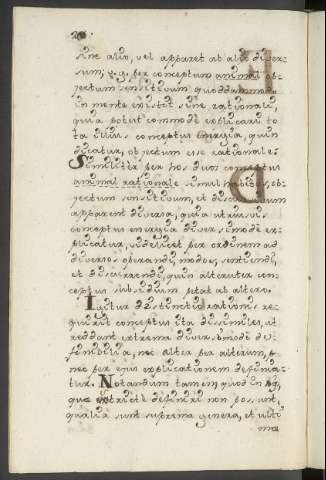 sine alio, vel apparet ab alio diver-
sum; v.g. per conceptum animal ob-
jectum sensitivum quoddammodo
in mente existit sine rationali,
quia potest commode explicari to-
ta illius conceptus energia, quin
dicatur, objectum esse rationale.
Similiter per hos duos conceptus
animal rationale simul habitos, ob-
jectum sensitivum, et
apparent diversa, quia utriusque
conceptus energia diversimode ex-
plicatur, videlicet per ordinem ad
diversos operandi modos, sentiendi,
et discurrendi, quin alteruter con-
ceptus subsidium petat ab altero.
Igitur distinctio rationis re-
quirit conceptus ita dissimiles, ut
reddant extrema diversimode de-
finibilia, nec alter per alterum,
nec per ejus explicationem definia-
tur. Notandum tamen quod in
quae stricte definiri non possunt,
qualia sunt suprema genera, et ulti-
ma